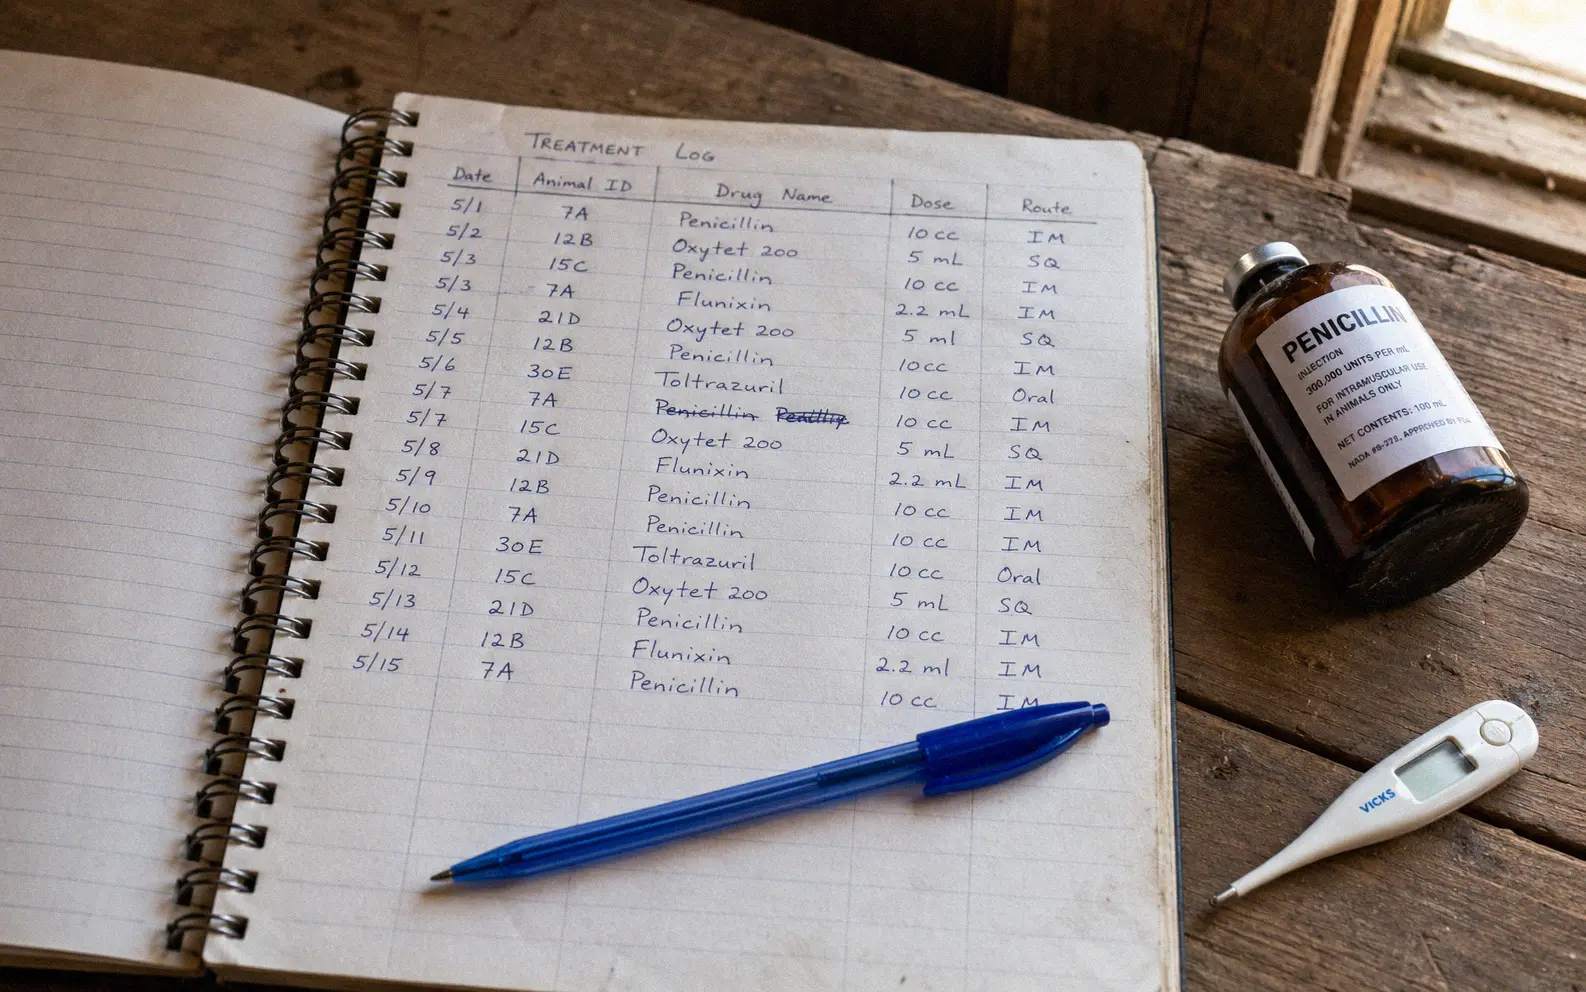 TREATMENT LOG
Date Animal ID Drug Name Dose Route
5/1 7A Penicillin 10 cc IM
5/2 12B Oxytet 200 5 mL SQ
5/3 15C Penicillin 10 cc IM
5/3 7A Flunixin 2.2 mL IM
5/4 21D Oxytet 200 5 ml SQ
5/5 12B Penicillin 10cc IM
5/6 30E Toltrazuril 10 cc Oral
5/7 7A Penicillin 10 cc IM
5/7 15C Oxytet 200 5 mL SQ
5/8 21D Flunixin 2.2 mL IM
5/9 12B Penicillin 10 cc IM
5/10 7A Penicillin 10 cc IM
5/11 30E Toltrazuril 10 cc Oral
5/12 15C Oxytet 200 5 mL SQ
5/13 21D Penicillin 10 cc IM
5/14 12B Flunixin 2.2 ml IM
5/15 7A Penicillin 10 cc IM
PENICILLIN
INJECTION
300,000 UNITS PER mL
FOR INTRAMUSCULAR USE
IN ANIMALS ONLY
NET CONTENTS: 100 mL
NADA APPROVED BY
VICKS